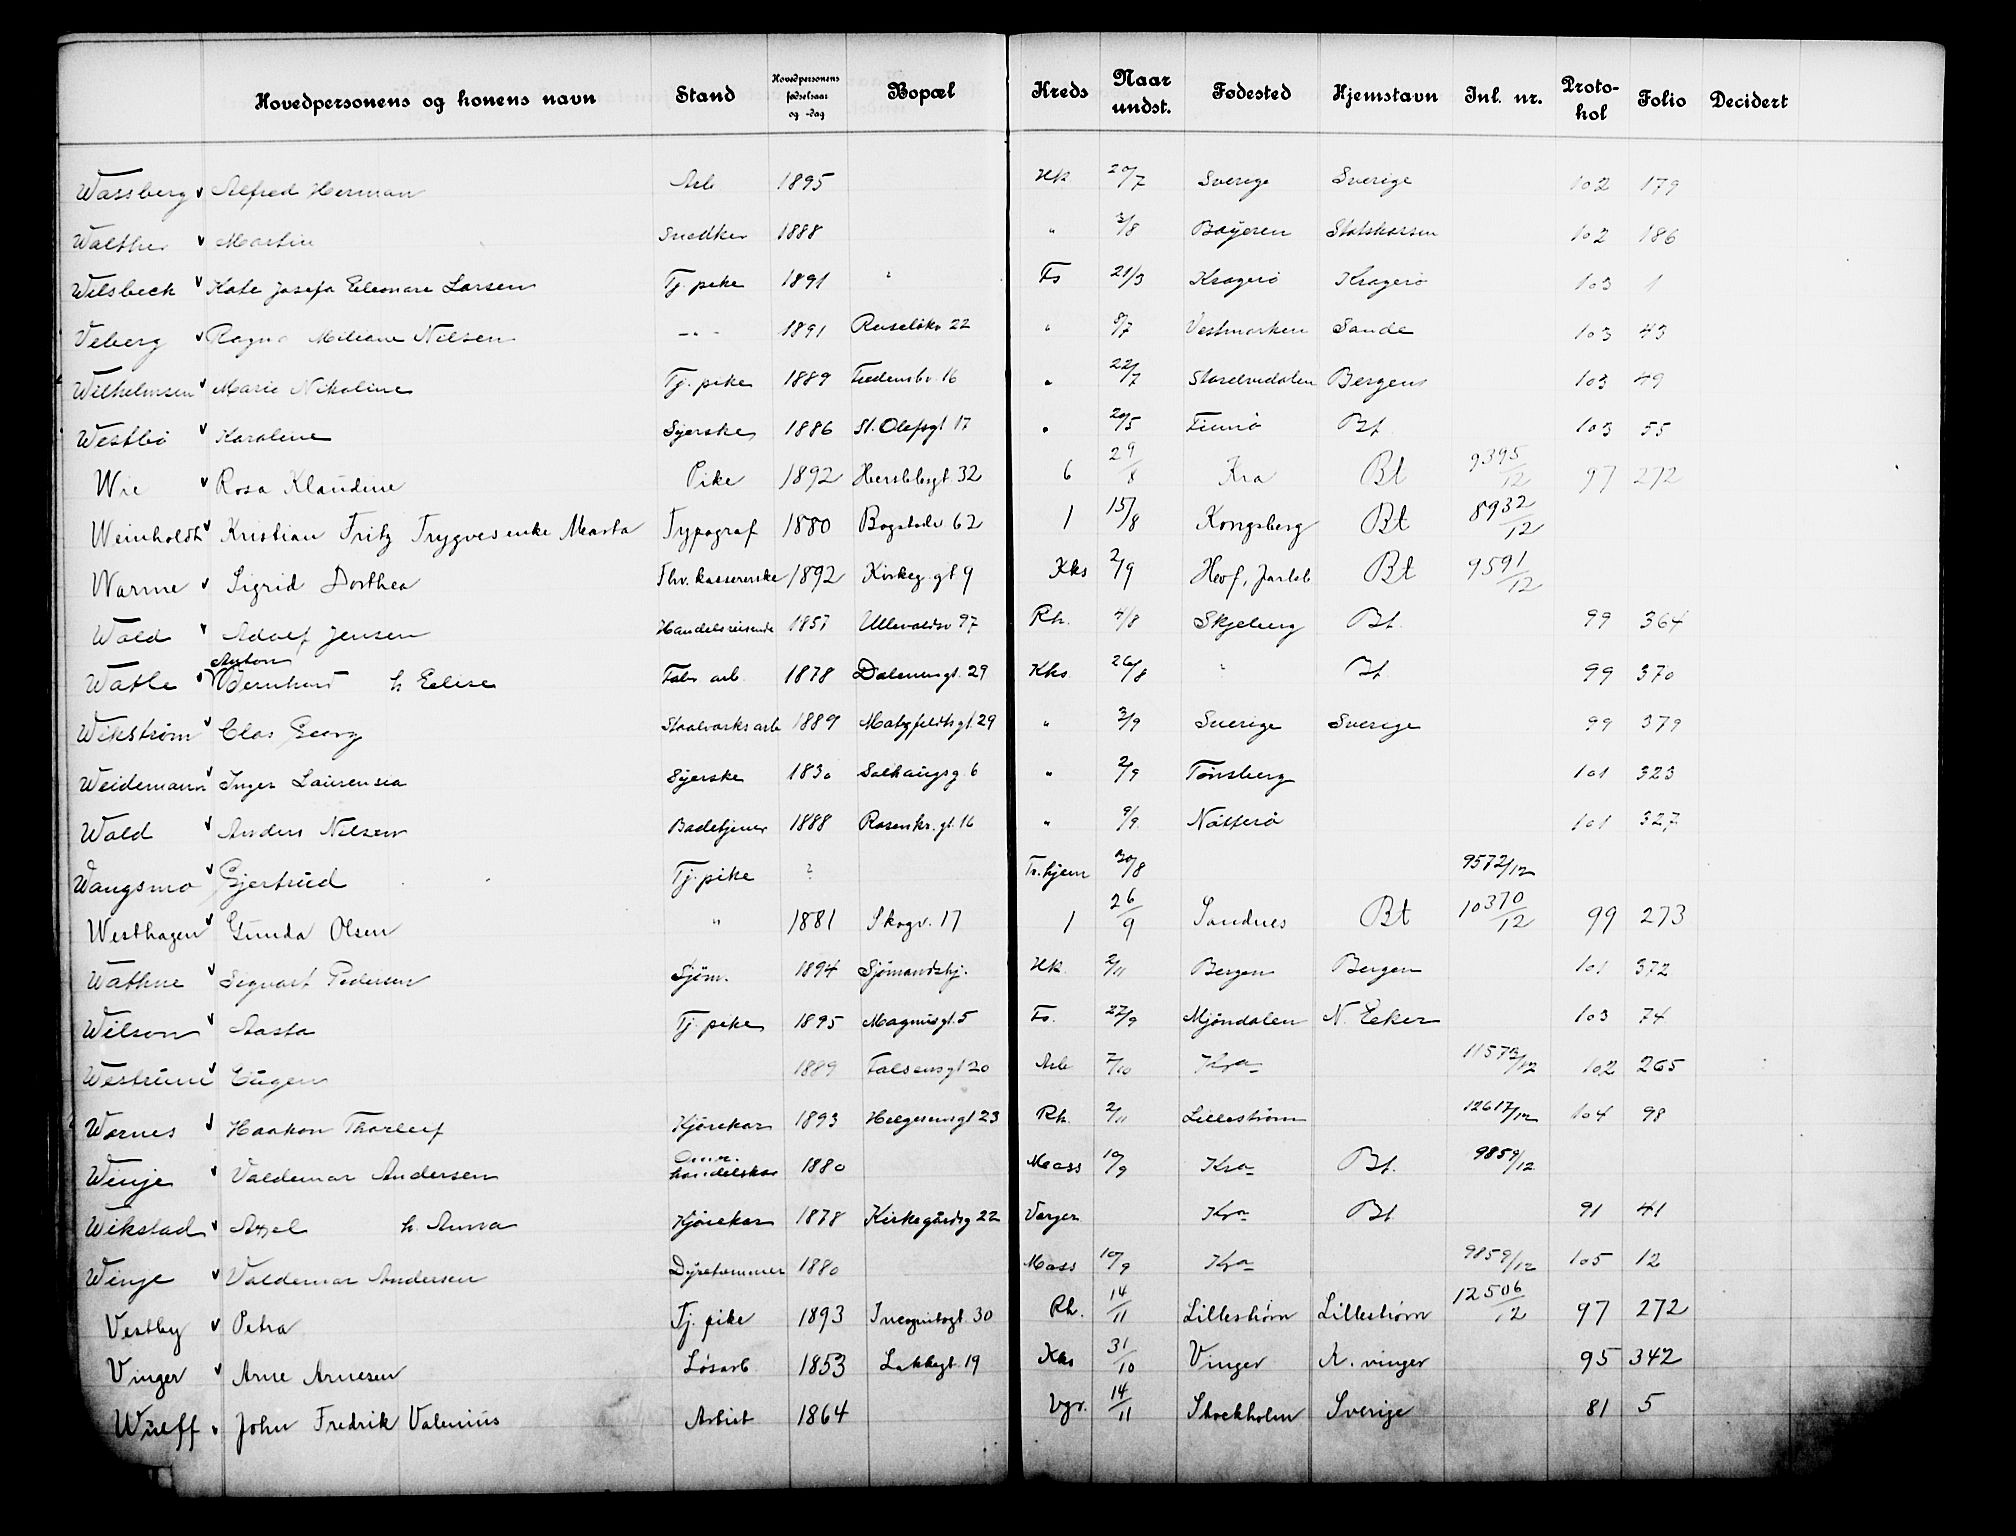 Hovedpersonens og konens navn Stand Hovedpersonens fødselsaar og -dag Bopæl Kreds Naar undst. Fødested Hjemstavn Inl. nr. Protokol Folio Decidert
Wassberg Alfred Herman Arb 1895 Hk 20/7 Sverige Sverige 102 179
Walther Martin Snedker 1888 " 3/8 Bayeren Statskassen 102 186
Wilsbeck Kate Josefa Eleonare Larsen Tj. pike 1891 " Fs 21/3 Kragerø Kragerø 103 1
Veberg Ragna Miliane Nilsen -"- 1891 Ruseløkv 22 " 8/7 Vestmarken Sande 103 43
Wilhelmsen Marie Nikoline Tj. pike 1889 Fredensbv. 16 " 22/7 Bergens 103 49
Westbø Karoline Syerske 1886 St. Olafsgt 17 " 20/5 Finnø Bt 103 55
Wie Rosa Klaudine Pike 1892 Herslebsgt 32 6 29/8 Kra Bt 9395/12 97 272
Weinholdt Kristian Fritz Trygves enke Marta Typograf 1880 Bogstadv 62 1 15/8 Kongsberg Bt 8932/12
Warme Sigrid Dorthea Thv. kassererske 1892 Kirkeg gt 9 Kks 2/9 Hof, Jarlsb Bt 9591/12
Wold Adolf Jensen Handelsreisende 1857 Ullevoldsv 97 Rh. 4/8 Skjeberg Bt. 99 364
Anton
Watle Bernhard h Elise Fabr. arb. 1878 Dalensgt. 29 Kks 26/8 " Bt. 99 370
Wikstrøm Clas Georg Staalværksarb 1889 Matzfeldtsgt 29 " 3/9 Sverige Sverige 99 379
Weidemann Inger Laurensia Syerske 1830 Solhaugsg. 6 " 2/9 Tønsberg 101 323
Wold Anders Nilsen Badetjener 1888 Rosenkr. gt. 16 " 9/9 Nøtterø 101 327
Wangsmo Gjertrud Tj. pike ? Fr. hjem 30/8 9572/12
Westhagen Gunda Olsen " 1881 Skogv. 17 1 26/9 Sandnes Bt 10370/12 99 273
Wathne Sigvart Pedersen Sjøm. 1894 Sjømandshj. Hk. 2/11 Bergen Bergen 101 372
Wilson Aasta Tj. pike 1895 Magnusgt. 5 Fs. 27/9 Mjøndalen N. Eeker 103 74
Westrum Eugen 1889 Falsensgt 20 Arb 7/10 Kra 11573/12 102 265
Wornes Haakon Thorleif Kjørekar 1893 Helgesensgt 23 Rh. 2/11 Lillestrøm 12617/12 104 98
Winje Valdemar Andersen Omr. handelskar 1880 Mass 10/9 Kra Bt. 9859/12
Wikstad Axel h. Anna Kjørekar 1878 Kirkegårdsg 22 Varger Kra Bt 91 41
Winje Valdemar Andersen Dyretemmer 1880 Mass 10/9 Kra 9859/12 105 12
Vestby Petra Tj. pike 1893 Incognitogt. 30 Rh. 14/11 Lillestrøm Lillestrøm 12506/12 97 272
Vinger Arne Arnesen Løsarb. 1853 Lakkegt. 19 Kks 31/10 Vinger K. vinger 95 342
Wulff John Fredrik Valenius Artist 1864 Vgr. 14/11 Stockholm Sverige 81 5